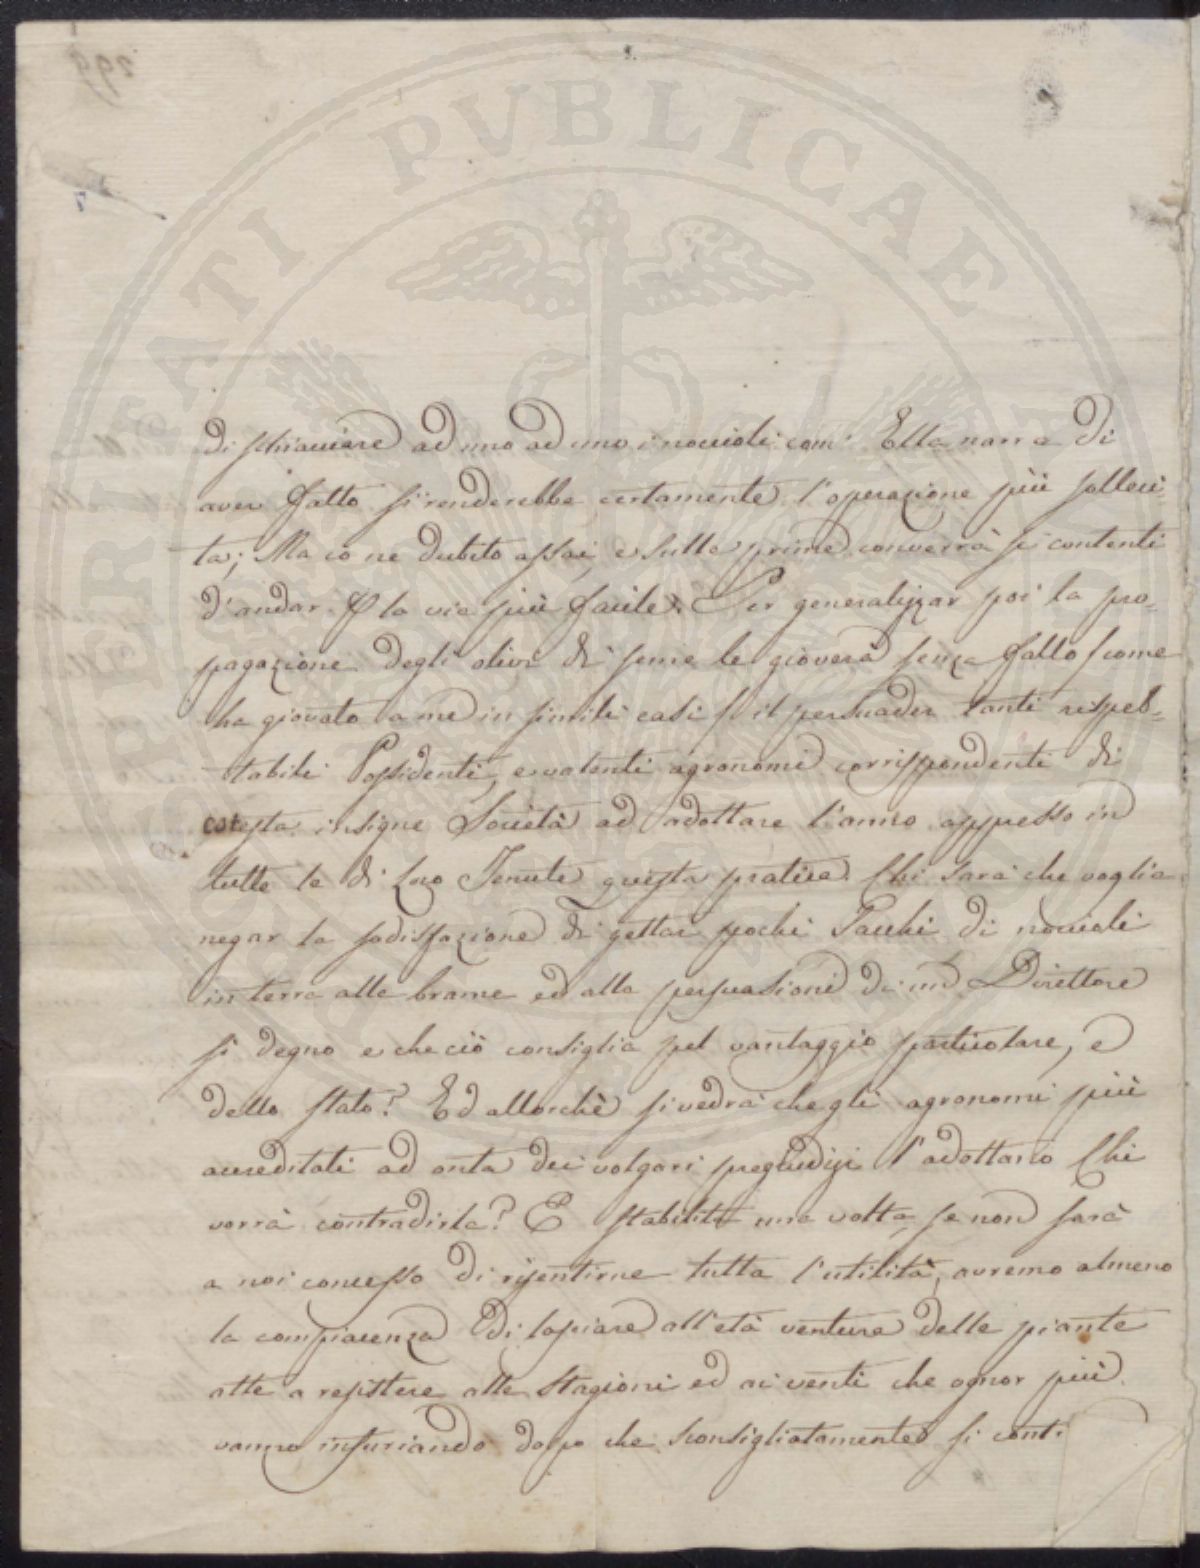 PROSPERITATI PVBLICAE AVGENDAE
299
di schiacciare ad uno ad uno i noccioli com' Ella narra di
aver fatto si renderebbe certamente l'operazione più solleci-
ta; Ma io ne dubito assai, e sulle prime converrà si contenti
d'andar p la via più facile. Per generalizzar poi la pro-
pagazione degli olivi di seme le gioverà senza fallo /come
ha giovato a me in simili casi/ il persuader tanti rispet-
tabili Possidenti, e valenti agronomi corrispondenti di
cotesta insigne Società ad adottare l'anno appresso in
tutte le di Loro Tenute questa pratica. Chi sarà che voglia
negar la sodisfazione di gettar pochi Sacchi di noccioli
in terra alle brame ed alla persuasione di un Direttore
sì degno e che ciò consiglia pel vantaggio particolare, e
dello stato? Ed allorchè si vedrà che gli agronomi più
accreditati ad onta dei volgari pregiudizi l'adottano Chi
vorrà contradirla? E stabilita una volta, se non sarà
a noi concesso di risentirne tutta l'utilità, avremo almeno
la compiacenza di lasciare all'età venture delle piante
atte a resistere alle Stagioni ed ai venti che ognor più
vanno infuriando dopo che sconsigliatamente si cont